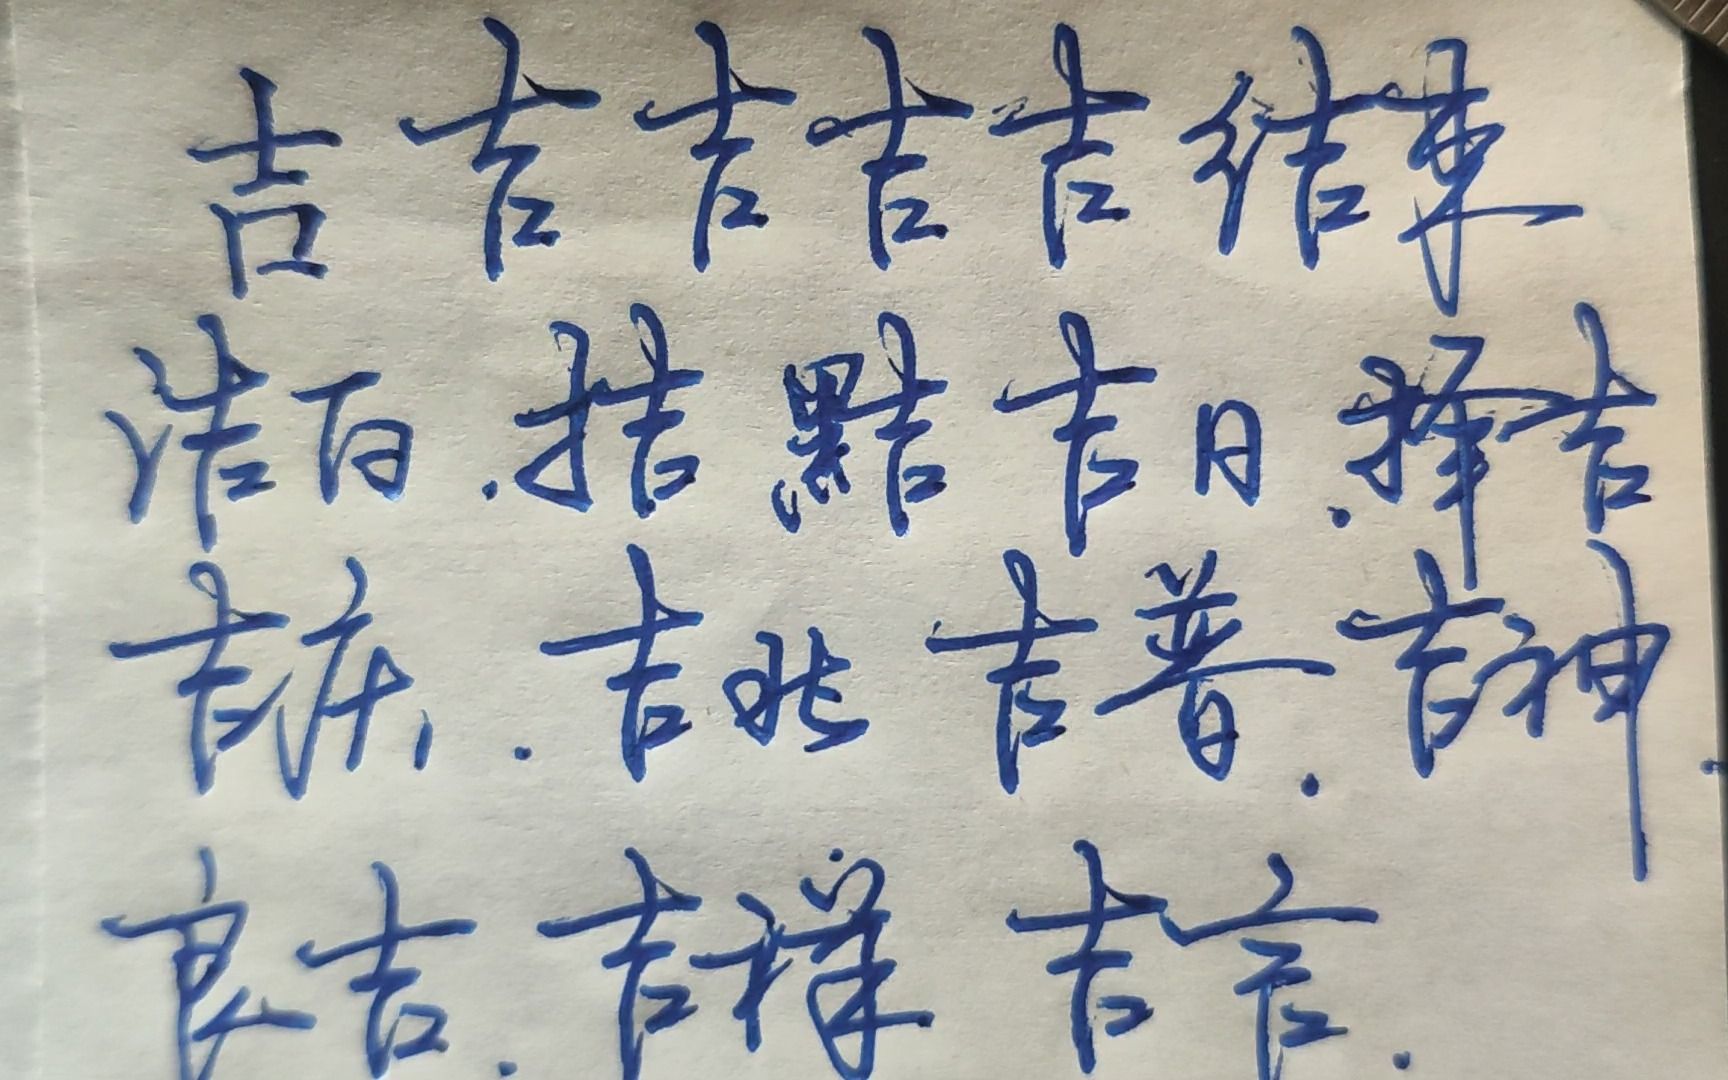 吉吉吉吉吉结束
洁白.拮黠吉日.择吉
吉庆.吉兆吉普.吉神
良吉.吉祥吉言.